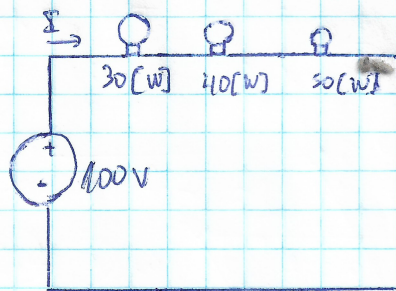 I
30[W] 40[W] 50[W]
+
100V
-